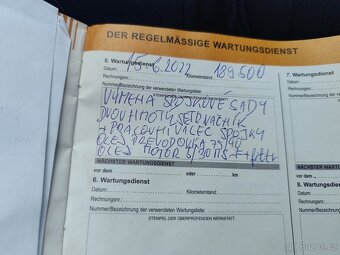 DER REGELMÄSSIGE WARTUNGSDIENST
5. Wartungsdienst
Datum: 15.6.2022 Kilometerstand: 189 500
Rechnungsnr.:
Nummer/Bezeichnung der verwendeten Wartungsliste:
VÝMĚNA SPOJKOVÉ SADY
DVOUHMOTY SETRVAČNÍK
+ PRACOVNÍ VÁLEC SPOJKY
OLEJ PŘEVODOVKA 75/90
OLEJ MOTOR 5/30
NÄCHSTER WARTUNGSDIENST
vor dem oder vor km
6. Wartungsdienst
Datum: Kilometerstand:
Rechnungsnr.:
Nummer/Bezeichnung der verwendeten Wartungsliste:
STEMPEL DER ÜBERPRÜFENDEN WERKSTATT
7. Wartungsdienst
Datum:
Rechnungsnr.:
Nummer/Bezeich
NÄCHSTER
vor dem
8. Wart
Datum:
Rechnungs
Nummer/B